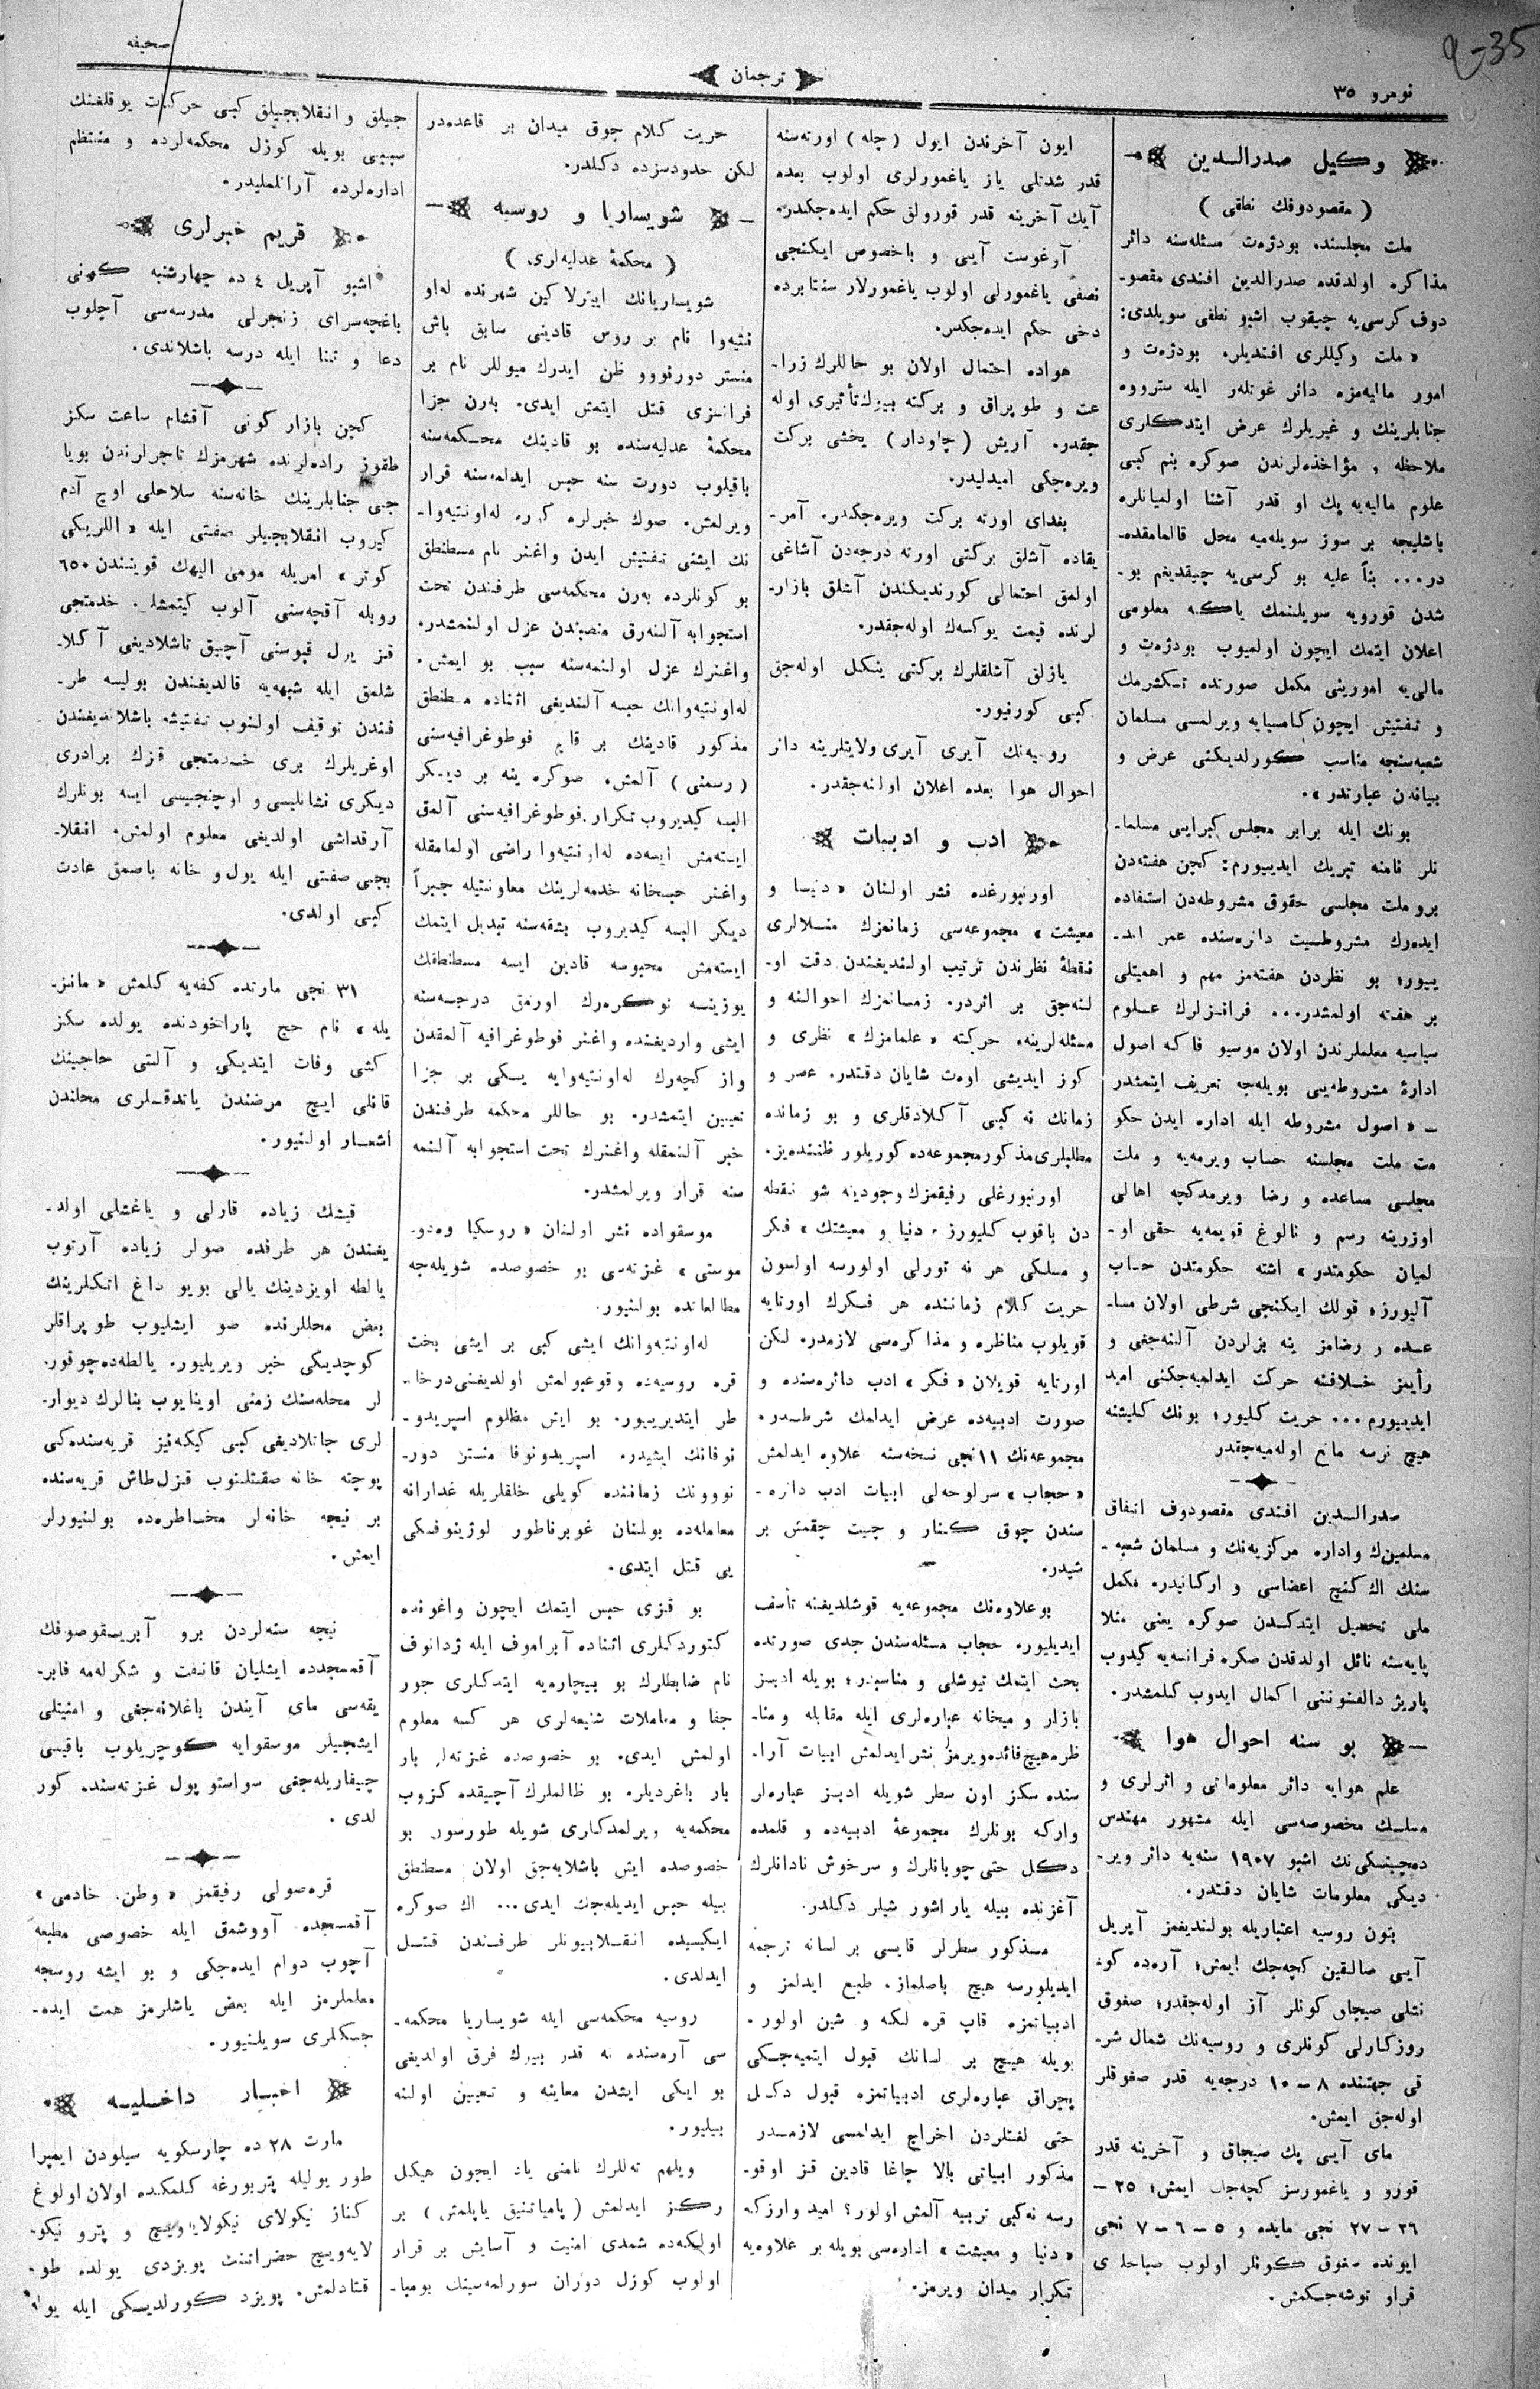 نومرو ٣٥
ترجمان
صحیفه
وكیل صدرالـدین
( مقصودوفك نطقی )
ملت مجلسنده بودژەت مسئله‌سنه دائر
مذاكره اولدقده صدرالدین افندی مقصو-
دوف كرسی‌یه چیقوب اشبو نطقی سویلدی:
« ملت وكیللری افندیلر، بودژەت و
امور مالیه‌مزه دائر غوتلەر ایله سترووه
جنابلرینك و غیریلرك عرض ایتدكلری
ملاحظه و مؤاخذه‌لرندن صوكره بنم كبی
علوم مالیه‌یه پك او قدر آشنا اولمیانلره
باشلیجه بر سوز سویله‌میه محل قالمامقده-
در... بناً علیه بو كرسی‌یه چیقدیغم بو-
شدن قورویه سویلنمك یاكه معلومی
اعلان ایتمك ایچون اولمیوب بودژەت و
مالی‌یه امورینی مكمل صورتده تكشرمك
و تفتیش ایچون كامسیایه ویرلمسی مسلمان
شعبه‌سنجه مناسب كورلدیكنی عرض و
بیاندن عبارتدر».
بونك ایله برابر مجلس كبرایی مسلما-
نلر نامنه تبریك ایدییورم: كچن هفته‌دن
برو ملت مجلسی حقوق مشروطه‌دن استفاده
ایده‌رك مشروطیت دائره‌سنده عمر اید-
ییور؛ بو نظردن هفته‌مز مهم و اهمیتلی
بر هفته اولمشدر... فرانسزلرك علوم
سیاسیه معلملرندن اولان موسیو فاكه اصول
ادارۀ مشروطه‌یی بویله‌جه تعریف ایتمشدر
ـ « اصول مشروطه ایله اداره ایدن حكو
مت ملت مجلسنه حساب ویرمه‌یه و ملت
مجلسی مساعده و رضا ویرمدكچه اهالی
اوزرینه رسم و نالوغ قویمه‌یه حقی او-
لمیان حكومتدر» اشته حكومتدن حساب
آلیورز؛ قولك ایكنجی شرطی اولان مسا-
عـده و رضامز ینه بزلردن آلنه‌جغی و
رأیمز خـلافنه حركت ایدلمیه‌جكنی امید
ایدییورم... حریت كلیور؛ بونك كلیشنه
هیچ نرسه مانع اوله‌میه‌جقدر
صدرالـدین افندی مقصودوف اتفاق
مسلمینك و اداره مركزیه‌نك و مسلمان شعبه-
سنك اك كنج اعضاسی و اركانیدر. مكمل
ملی تحصیل ایتدكـدن صوكره یعنی منلا
پایه‌سنه نائل اولدقدن صكره فرانسه‌یه كیدوب
پاریژ دالفنوننی اكمال ایدوب كلمشدر.
بو سنه احوال هوا
علم هوایه دائر معلوماتی و اثرلری و
مسلـك مخصوصه‌سی ایله مشهور مهندس
دمچینسكی‌نك اشبو ١٩٠٧ سنه‌یه دائر ویر-
دیكی معلومات شایان دقتدر.
بتون روسیه اعتباریله بولندیغمز آپریل
آیی صالقین كچه‌جك ایمش؛ آره‌ده كو-
نشلی صیجاق كونلر آز اوله‌جقدر؛ صغوق
روزكارلی كونلری و روسیه‌نك شمال شر-
قی جهتنده ٨ – ١٠ درجه‌یه قدر صغوقلر
اوله‌جق ایمش.
مای آیی پك صیجاق و آخرینه قدر
قورو و یاغمورسز كچه‌جك ایمش؛ ٢٥ –
٢٦ – ٢٧ نجی مایده و ٥ – ٦ – ٧ نجی
ایونده صغوق كونلر اولوب صباحلری
قراو توشه‌جكمش.
ایون آخرندن ایول ( چله ) اورته‌سنه
قدر شدتلی یاز یاغمورلری اولوب بعده
آیك آخرینه قدر قورولق حكم ایده‌جكدر.
آوغوست آیی و باخصوص ایكنجی
نصفی یاغمورلی اولوب یاغمورلار سنتابرده
دخی حكم ایده‌جكدر.
هواده احتمال اولان بو حاللرك زرا-
عت و طوپراق و بركته بیوك تأثیری اوله
جقدر. آریش ( چاودار ) یخشی بركت
ویره‌جكی امیدلیدر.
بغدای اورته بركت ویره‌جكدر. آمر-
یقاده آشلق بركتی اورته درجه‌دن آشاغی
اولمق احتمالی كورندیكندن آشلق بازار-
لرنده قیمت یوكسه‌ك اوله‌جقدر.
یازلق آشلقلرك بركتی ینكل اوله‌جق
كبی كورنیور.
روسیه‌نك آیری آیری ولایتلرینه دائر
احوال هوا بعده اعلان اولنه‌جقدر.
ادب و ادبیات
اورنبورغده نشر اولنان « دنیـا و
معیشت » مجموعه‌سی زمانمزك منـلالری
نقطۀ نظرندن ترتیب اولندیغندن دقت او-
لنه‌جق بر اثردر. زمـانمزك احوالنه و
مسئله‌لرینه، حركته « علمامزك » نظری و
كوز ایدیشی اوەت شایان دقتدر. عصر و
زمانك نه كبی آكلادقلری و بو زمانده
مطلبلری مذكور مجموعه‌ده كوریلور ظننده‌یز.
اورنبورغلی رفیقمزك وجودینه شو نقطه
دن باقوب كلیورز. دنیا و معیشتك » فكر
و مسلكی هر نه تورلی اولورسه اولسون
حریت كلام زماننده هر فكرك اورتایه
قویلوب مناظره و مذاكره‌سی لازمدر. لكن
اورتایه قویلان « فكر » ادب دائره‌سنده و
صورت ادبیه‌ده عرض ایدلمك شرطـدر.
مجموعه‌نك ١١ نجی نسخه‌سنه علاوه ایدلمش
« حجاب » سرلوحه‌لی ابیات ادب دائره-
سندن چوق كنار و چیت چقمش بر
شیدر.
بوعلاوه‌نك مجموعه‌یه قوشلدیغنه تأسف
ایدیلیور. حجاب مسئله‌سندن جدی صورتده
بحث ایتمك تیوشلی و مناسبدر؛ بویله ادبسز
بازار و میخانه عباره‌لری ایله مقابله و منا-
ظره هیچ فائده ویرمز. نشر ایدلمش ابیات آرا-
سنده سكز اون سطر شویله ادبسز عباره‌لر
واركه بونلرك مجموعۀ ادبیه‌ده و قلمده
دكـل حتی چوبانلرك و سرخوش نادانلرك
آغزنده بیله یاراشور شیلر دكلدر.
مـذكور سطرلر قایسی بر لسانه ترجمه
ایدیلورسه هیچ باصلماز. طبع ایدلمز و
ادبیاتمزه قاپ قره لكه و شین اولور.
بویله هیـچ بر لسانك قبول ایتمیه‌جـكی
پچراق عباره‌لری ادبیاتمزه قبول دكـل
حتی لغتلردن اخراج ایدلمسی لازمـدر
مذكور ابیاتی بالا چاغا قادین قز اوقو-
رسه نه‌كبی تربیه آلمش اولور؟ امید وارزكه
« دنیا و معیشت » اداره‌سی بویله بر علاوه‌یه
تكرار میدان ویرمز.
حریت كلام چوق میدان بر قاعده‌در
لكن حدودسزده دكلدر.
شویساریا و روسیه
( محكمۀ عدلیه‌لری )
شویساریانك اینترلاكین شهرنده له‌او
نتیەوا نام بر روس قادینی سابق باش
منستر دورنووو ظن ایدرك میوللر نام بر
فرانسزی قتل ایتمش ایدی. بەرن جزا
محكمۀ عدلیه‌سنده بو قادینك محـكمه‌سنه
باقیلوب دورت سنه حبس ایدلمه‌سنه قرار
ویرلمش. صوك خبرلره كوره له‌اونتیەوا-
نك ایشنی تفتیش ایدن واغنر نام مسطنطق
بو كونلرده بەرن محكمه‌سی طرفندن تحت
استجوابه آلنه‌رق منصبندن عزل اولنمشدر.
واغنرك عزل اولنمه‌سنه سبب بو ایمش.
له‌اونتیەوانك حبسه آلندیغی اثناده مسطنطق
مذكور قادینك بر قاچ فوطوغرافیه‌سنی
( رسمنی ) آلمش، صوكره ینه بر دیـكر
البسه كیدیروب تكرار فوطوغرافیه‌سنی آلمق
ایسته‌مش ایسه‌ده له‌اونتیەوا راضی اولمامقله
واغنر حبسخانه خدمه‌لرینك معاونتیله جبراً
دیكر البسه كیدیروب بشقه‌سنه تبدیل ایتمك
ایسته‌مش محبوسه قادین ایسه مسطنطقك
یوزینـه توكره‌رك اورمق درجـه‌سنه
ایشی واردیغنده واغنر فوطوغرافیه آلمقدن
واز كچه‌رك له‌اونتیەوایه یـكی بر جزا
تعیین ایتمشدر. بو حاللر محكمه طرفندن
خبر آلنمقله واغنرك تحت استجوابه آلنمه
سنه قرار ویرلمشدر.
موسقواده نشر اولنان « روسكیا وەدو-
موستی » غزته‌سی بو خصوصده شویله‌جه
مطالعاتده بولنیور.
له‌اونتیەوانك ایشی كبی بر ایشی بخت
قره روسیه‌ده وقوعبولمش اولدیغنی درخا-
طر ایتدیرییور. بو ایش مظلوم اسپریدو-
نوفانك ایشیدر. اسپریدونوفا منستر دور-
نووونك زماننده كویلی خلقلریله غدارانه
معامله‌ده بولنان غوبرناطور لوژینوفـكی
یی قتل ایتدی.
بو قزی حبس ایتمك ایچون واغونده
كتوردكلری اثناده آبراموف ایله ژدانوف
نام ضابطلرك بو بیچاره‌یه ایتدكلری جور
جفا و معاملات شنیعه‌لری هر كسه معلوم
اولمش ایدی. بو خصوصده غزته‌لر بار
بار باغردیلر. بو ظالملرك آچیقده كزوب
محكمه‌یه ویرلمدكلری شویله طورسون بو
خصوصده ایش باشلایه‌جق اولان مسطنطق
بیله حبس ایدیله‌جك ایدی... اك صوكره
ایكیسیده انقـلابیونلر طرفـندن قتـل
ایدلدی.
روسیه محكمه‌سی ایله شویساریا محكمه-
سی آره‌سنده نه قدر بیوك فرق اولدیغی
بو ایكی ایشدن معاینه و تعیین اولنه
بیلیور.
ویلهم تەللرك نامنی یاد ایچون هیكل
ركـز ایدلمش ( پامیاتنیق یاپلمش ) بر
اولكه‌ده شمدی امنیت و آسایش بر قرار
اولوب كوزل دوران سورلمه‌سینك بومبا-
جیلق و انقلابجیلق كبی حركات یوقلغنك
سببی بویله كوزل محكمه‌لرده و منتظم
اداره‌لرده آرانلملیدر.
قریم خبرلری
اشبو آپریل ٤ ده چهارشنبه كونی
باغچه‌سرای زنجرلی مدرسه‌سی آچلوب
دعا و ثنا ایله درسه باشلاندی.
كچن بازار كونی آقشام ساعت سكز
طقوز راده‌لرنده شهرمزك تاجرلرندن بویا
جی جنابلرینك خانه‌سنه سلاحلی اوچ آدم
كیروب انقلابجیلر صفتی ایله « اللریكی
كوتر » امریله مومی الیهك قویتندن ٦٥٠
روبله آقچه‌سنی آلوب كیتمشلر. خدمتجی
قیز یول قپوسنی آچیق تاشلادیغی آكلا-
شلمق ایله شبهه‌یه قالدیغندن پولیسه طر-
فندن توقیف اولنوب تفتیشه باشلاندیغندن
اوغریلرك بری خـدمتجی قزك برادری
دیكری نشانلیسی و اوچنجیسی ایسه بونلرك
آرقداشی اولدیغی معلوم اولمش. انقلا-
بجی صفتی ایله یول و خانه باصمق عادت
كبی اولدی.
٣١ نجی مارتده كفه‌یه كلمش « مانز-
یله » نام حج پاراخودنده یولده سكز
كشی وفات ایتدیكی و آلتی حاجینك
قانلی ایچ مرضندن یاتدقـلری محلندن
اشعـار اولنیور.
قیشك زیاده قارلی و یاغشلی اولد-
یغندن هر طرفده صولر زیاده آرتوب
یالطه اویزدینك یالی بویو داغ اتكلرینك
بعض محللرنده صو ایشلیوب طوپراقلر
كوچدیكی خبر ویریلیور. یالطه‌ده چوقور-
لر محله‌سنك زمنی اوینایوب بنالرك دیوار-
لری جاتلادیغی كبی كیكه‌نیز قریه‌سنده‌كی
پوچته خانه صقتلنوب قزل‌طاش قریه‌سنده
بر نیجه خانه‌لر مخـاطره‌ده بولنیورلر
ایمش.
نیجه سنه‌لردن برو آبریـقوصوفك
آقمسجدده ایشلیان قانفت و شكرله‌مه فابر-
یقه‌سی مای آیندن باغلانه‌جغی و امنیتلی
ایشجیلر موسقوایه كوچریلوب باقیسی
چیقاریله‌جغی سواستوپول غزته‌سنده كور
لدی.
قره‌صولی رفیقمز « وطن خادمی »
آقمسجده آووشمق ایله خصوصی مطبعه
آچوب دوام ایده‌جكی و بو ایشه روسجه
معلملرمز ایله بعض یاشلرمز همت ایده-
جـكلری سویلنیور.
اخبـار داخـلیـه
مارت ٢٨ ده چارسكویه سیلودن ایمپرا
طور یولیله پتربورغه كلمكده اولان اولوغ
كناز نیكولای نیكولایه‌ویچ و پترو نیكو-
لایه‌ویچ حضراتنك پویزدی یولده طو-
قتادلمش. پویزد كورلدیـكی ایله یول